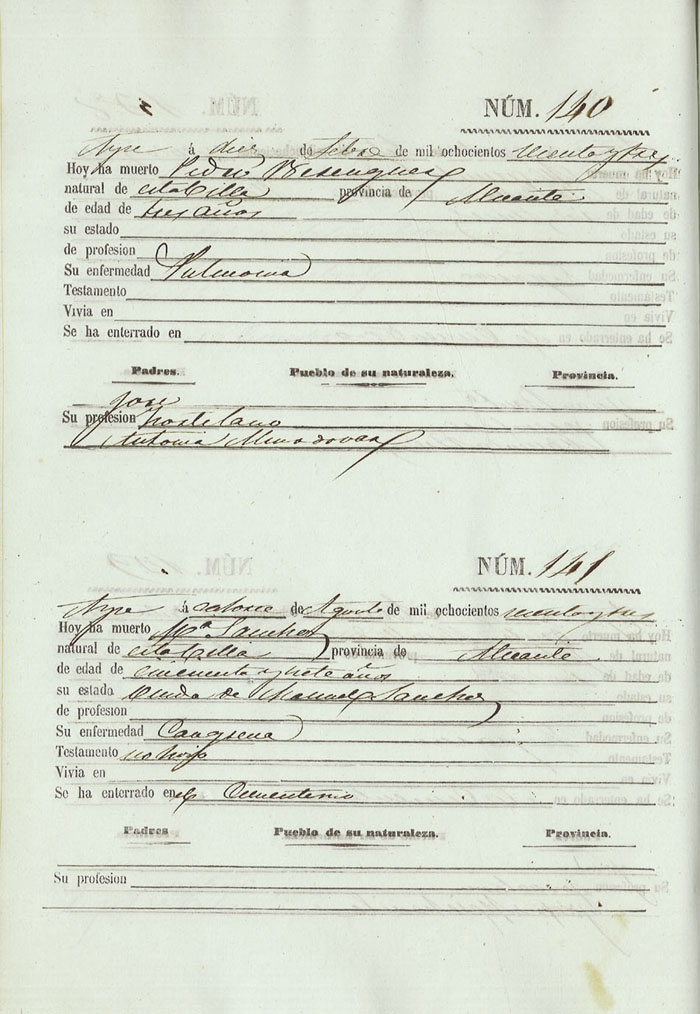 NÚM. 140
Aspe á diez de Febro de mil ochocientos
Hoy ha muerto Pedro Berenguer
natural de esta Villa provincia de Alicante
de edad de tres años
su estado
de profesion
Su enfermedad Pulmonia
Testamento
Vivia en
Se ha enterrado en
Padres. Pueblo de su naturaleza. Provincia.
Jose
Su profesion hortelano
Antonia Almodovar
NÚM. 141
Aspe á catorce de Agosto de mil ochocientos
Hoy ha muerto Mª Sanchez
natural de esta Villa provincia de Alicante
de edad de cincuenta y siete años
su estado Viuda de Manuel Sanchez
de profesion
Su enfermedad Cangrena
Testamento no hizo
Vivia en
Se ha enterrado en el Cementerio
Padres Pueblo de su naturaleza. Provincia.
Su profesion